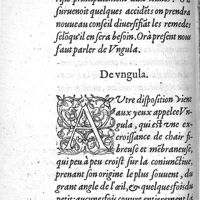 suruenoit quelques accidẽs on prendra
nouueau conseil diuersifiãt les remedes
selõ qu'il en sera besoin. Or à present nous
faut parler de Vngula.
De vngula.
AVtre disposition vient
aux yeux appelee Vn-
gula, qui est vne ex-
croissance de chair fi-
breuse et mẽbraneuse,
qui peu à peu croist sur la coniunctiue,
prenant son origine le plus souuent, du
grant angle de l'œil, & quelques fois du
petit: aucunesfois couure entierement la